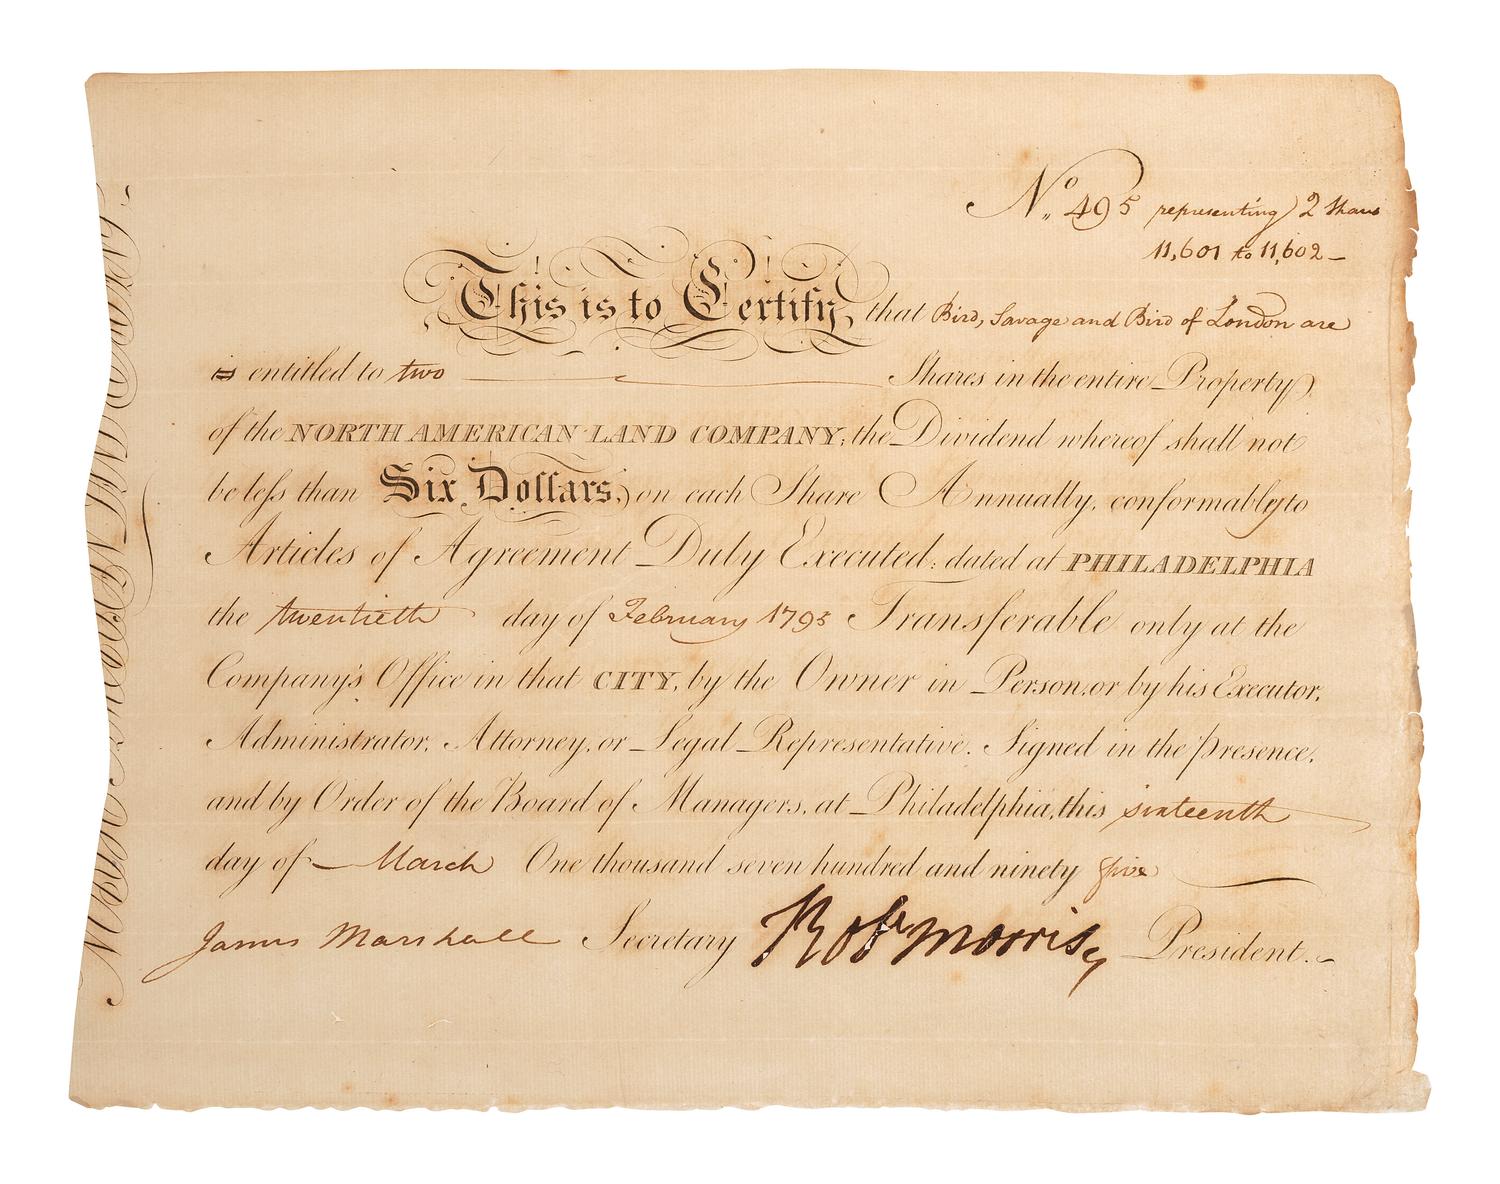 No 495 representing 2 Shares
11,601 to 11,602
This is to Certify, that Bird, Savage and Bird of London are
is entitled to two Shares in the entire Property
of the NORTH AMERICAN LAND COMPANY; the Dividend whereof shall not
be less than Six Dollars, on each Share Annually, conformably to
Articles of Agreement Duly Executed; dated at PHILADELPHIA
the twentieth day of February 1795 Transferable only at the
Company's Office in that CITY, by the Owner in Person, or by his Executor,
Administrator, Attorney, or Legal Representative. Signed in the presence,
and by Order of the Board of Managers, at Philadelphia, this sixteenth
day of March One thousand seven hundred and ninety five
James Marshall Secretary Robt Morris President.